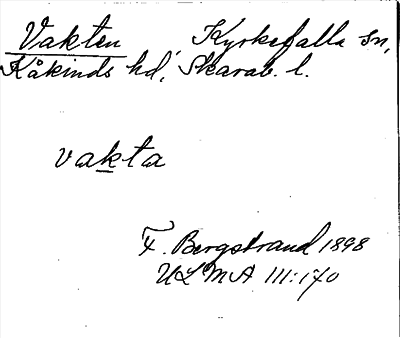 Vakten Kyrkefalla sn,
Kåkinds hd, Skarab. l.
vakta
F. Bergstrand 1898
ULMA 111:170